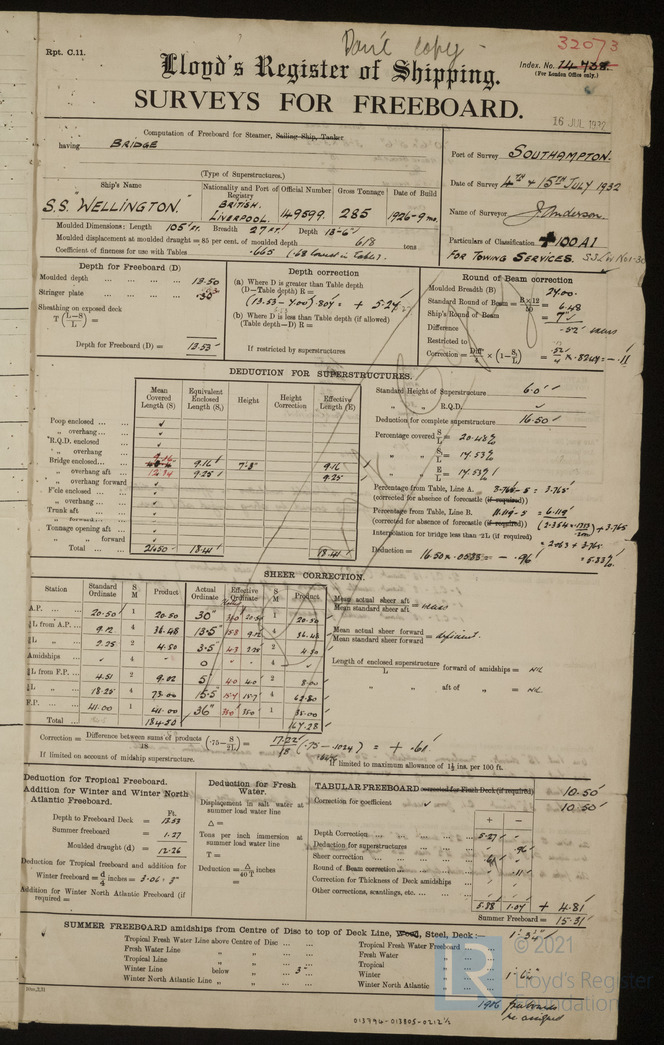 Rpt. C.11.
copy
32073
Lloyd's Register of Shipping.
Index. No. 14738.
(For London Office only.)
SURVEYS FOR FREEBOARD.
16 JUL 1932
Computation of Freeboard for Steamer, Sailing Ship, Tanker
having BRIDGE
(Type of Superstructures.)
Port of Survey SOUTHAMPTON.
Date of Survey 4TH & 15TH JULY 1932
Name of Surveyor J. Anderson.
Particulars of Classification +100 A1
FOR TOWING SERVICES.
Ship's Name
S.S. "WELLINGTON."
Nationality and Port of Registry
BRITISH.
LIVERPOOL.
Official Number
149599.
Gross Tonnage
285
Date of Build
1926-9 mo.
Moulded Dimensions: Length 105' FT. Breadth 27 FT. Depth 13'-6"
Moulded displacement at moulded draught = 85 per cent. of moulded depth 618 tons
Coefficient of fineness for use with Tables .665 (.68 used in Tables).
Depth for Freeboard (D)
Moulded depth 13.50
Stringer plate
Sheathing on exposed deck
T (L-S/L) =
Depth for Freeboard (D) = 13.53
Depth correction
(a) Where D is greater than Table depth
(D-Table depth) R =
(13.53 - 7.00) .807 = + 5.27
(b) Where D is less than Table depth (if allowed)
(Table depth-D) R =
If restricted by superstructures
Round of Beam correction
Moulded Breadth (B) 27.00
Standard Round of Beam = B×12/50 = 6.48
Ship's Round of Beam = 7"
Difference .52 excess
Restricted to
Correction = Diff/4 × (1-S/L) = .52/4 × .8247 = - .11
DEDUCTION FOR SUPERSTRUCTURES.
Mean Covered Length (S)
Equivalent Enclosed Length (S₁)
Height
Height Correction
Effective Length (E)
Poop enclosed
" overhang
R.Q.D. enclosed
" overhang
Bridge enclosed 9.16 9.16 7'-8" 9.16
" overhang aft 12.34 9.25 9.25
" overhang forward
F'cle enclosed
" overhang
Trunk aft
" forward
Tonnage opening aft
" " forward
Total 21.50 18.41 18.41
Standard Height of Superstructure 6.0'
" " R.Q.D.
Deduction for complete superstructure 16.50
Percentage covered S/L = 20.48%
" " S₁/L = 17.53%
" " E/L = 17.53%
Percentage from Table, Line A. = 3.765
(corrected for absence of forecastle (if required))
Percentage from Table, Line B. = 6.119
(corrected for absence of forecastle (if required))
Interpolation for bridge less than .2L (if required)
= 2.063 + 3.765
= 5.83%
Deduction = 16.50 × .0583 = - .96
SHEER CORRECTION.
Station
Standard Ordinate
S M
Product
Actual Ordinate
Effective Ordinate
S M
Product
A.P. 20.50 1 20.50 30" 20.50 1 20.50
⅙L from A.P. 9.12 4 36.48 13.5" 9.12 4 36.48
⅓L " 2.25 2 4.50 3.5" 2.25 2 4.50
Amidships 4 0 4
⅓L from F.P. 4.51 2 9.02 5" 4.0 4.0 2 8.00
⅙L " 18.25 4 73.00 15.5" 15.7 15.7 4 62.80
F.P. 41.00 1 41.00 36" 35.0 35.0 1 35.00
Total 184.50 167.28
Mean actual sheer aft / Mean standard sheer aft = excess
Mean actual sheer forward / Mean standard sheer forward = deficient.
Length of enclosed superstructure / L forward of amidships = NIL
" " aft of " = NIL
Correction = Difference between sums of products/18 (.75 - S/2L) = 17.22/18 (.75 - .1024) = + .61
If limited on account of midship superstructure.
If limited to maximum allowance of 1½ ins. per 100 ft.
Deduction for Tropical Freeboard.
Addition for Winter and Winter North Atlantic Freeboard.
Ft.
Depth to Freeboard Deck = 13.53
Summer freeboard = 1.27
Moulded draught (d) = 12.26
Deduction for Tropical freeboard and addition for
Winter freeboard = d/4 inches = 3.06 = 3"
Addition for Winter North Atlantic Freeboard (if required =
Deduction for Fresh Water.
Displacement in salt water at summer load water line
Δ =
Tons per inch immersion at summer load water line
T =
Deduction = Δ/40 T inches
=
TABULAR FREEBOARD corrected for Flush Deck (if required) 10.50
Correction for coefficient 10.50
+ -
Depth Correction 5.27
Deduction for superstructures .96
Sheer correction .61
Round of Beam correction .11
Correction for Thickness of Deck amidships
Other corrections, scantlings, etc.
5.88 1.07 + 4.81
Summer Freeboard = 15.31
SUMMER FREEBOARD amidships from Centre of Disc to top of Deck Line, Wood, Steel, Deck:— 1'-3¼"
Tropical Fresh Water Line above Centre of Disc
Fresh Water Line " "
Tropical Line " "
Winter Line below " 3"
Winter North Atlantic Line " "
Tropical Fresh Water Freeboard
Fresh Water "
Tropical "
Winter " 1'-6¼"
Winter North Atlantic "
1906 freeboards
be assigned
© 2021
Lloyd's Register
Foundation
013796-013805-0212½